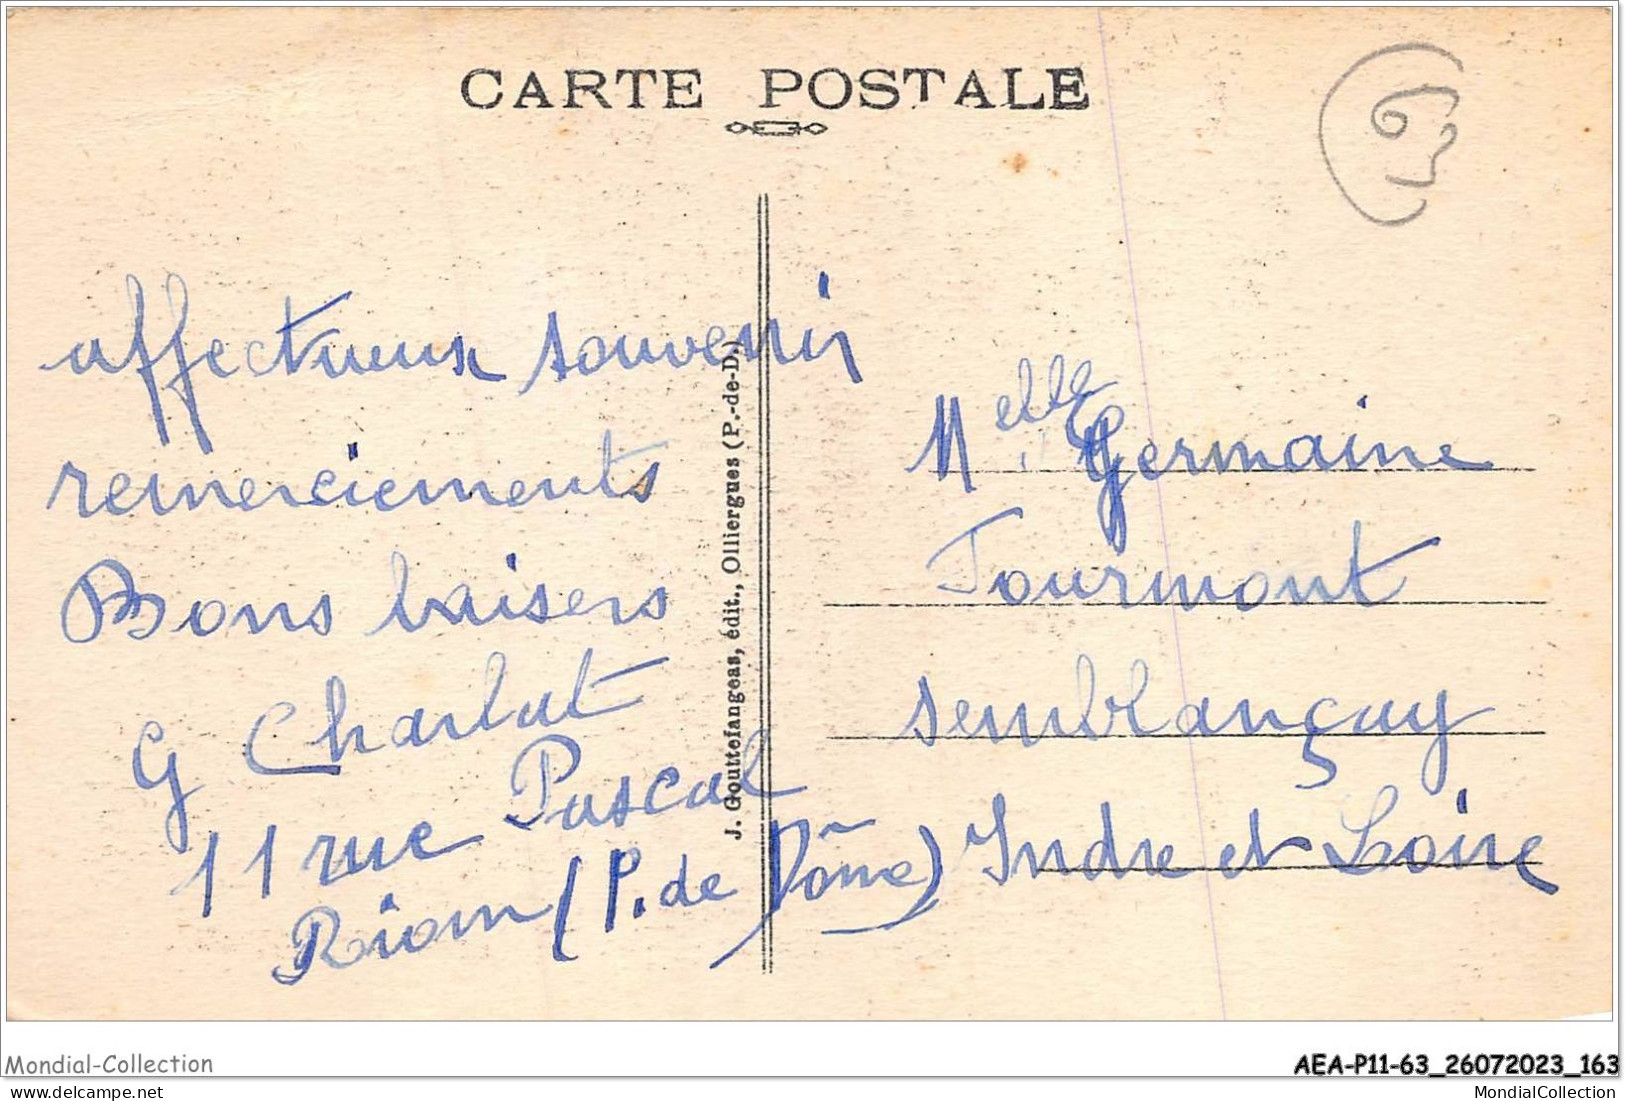 CARTE POSTALE
affectueux souvenir
remerciements
Bons baisers
G Charlat
11 rue Pascal
Riom (P. de Dôme)
J. Gouttefangeas, édit., Olliergues (P.-de-D.)
Melle Germaine
Tourmont
semblançay
Indre et Loire
Mondial-Collection
AEA-P11-63_26072023_163
MondialCollection (C)
MondialCollection